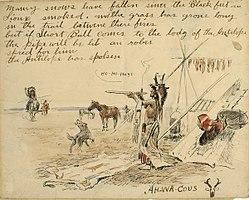 Many snows have fallen since the Black feet an
Sioux smoked, and the grass has grown long
in the trail between their fires
but if Short Bull comes to the lodg of the Antilope
the pipe will be lit an robes
spred for him
the Antilope has spoken
HO-HI-HIS!
AH-WA-COUS